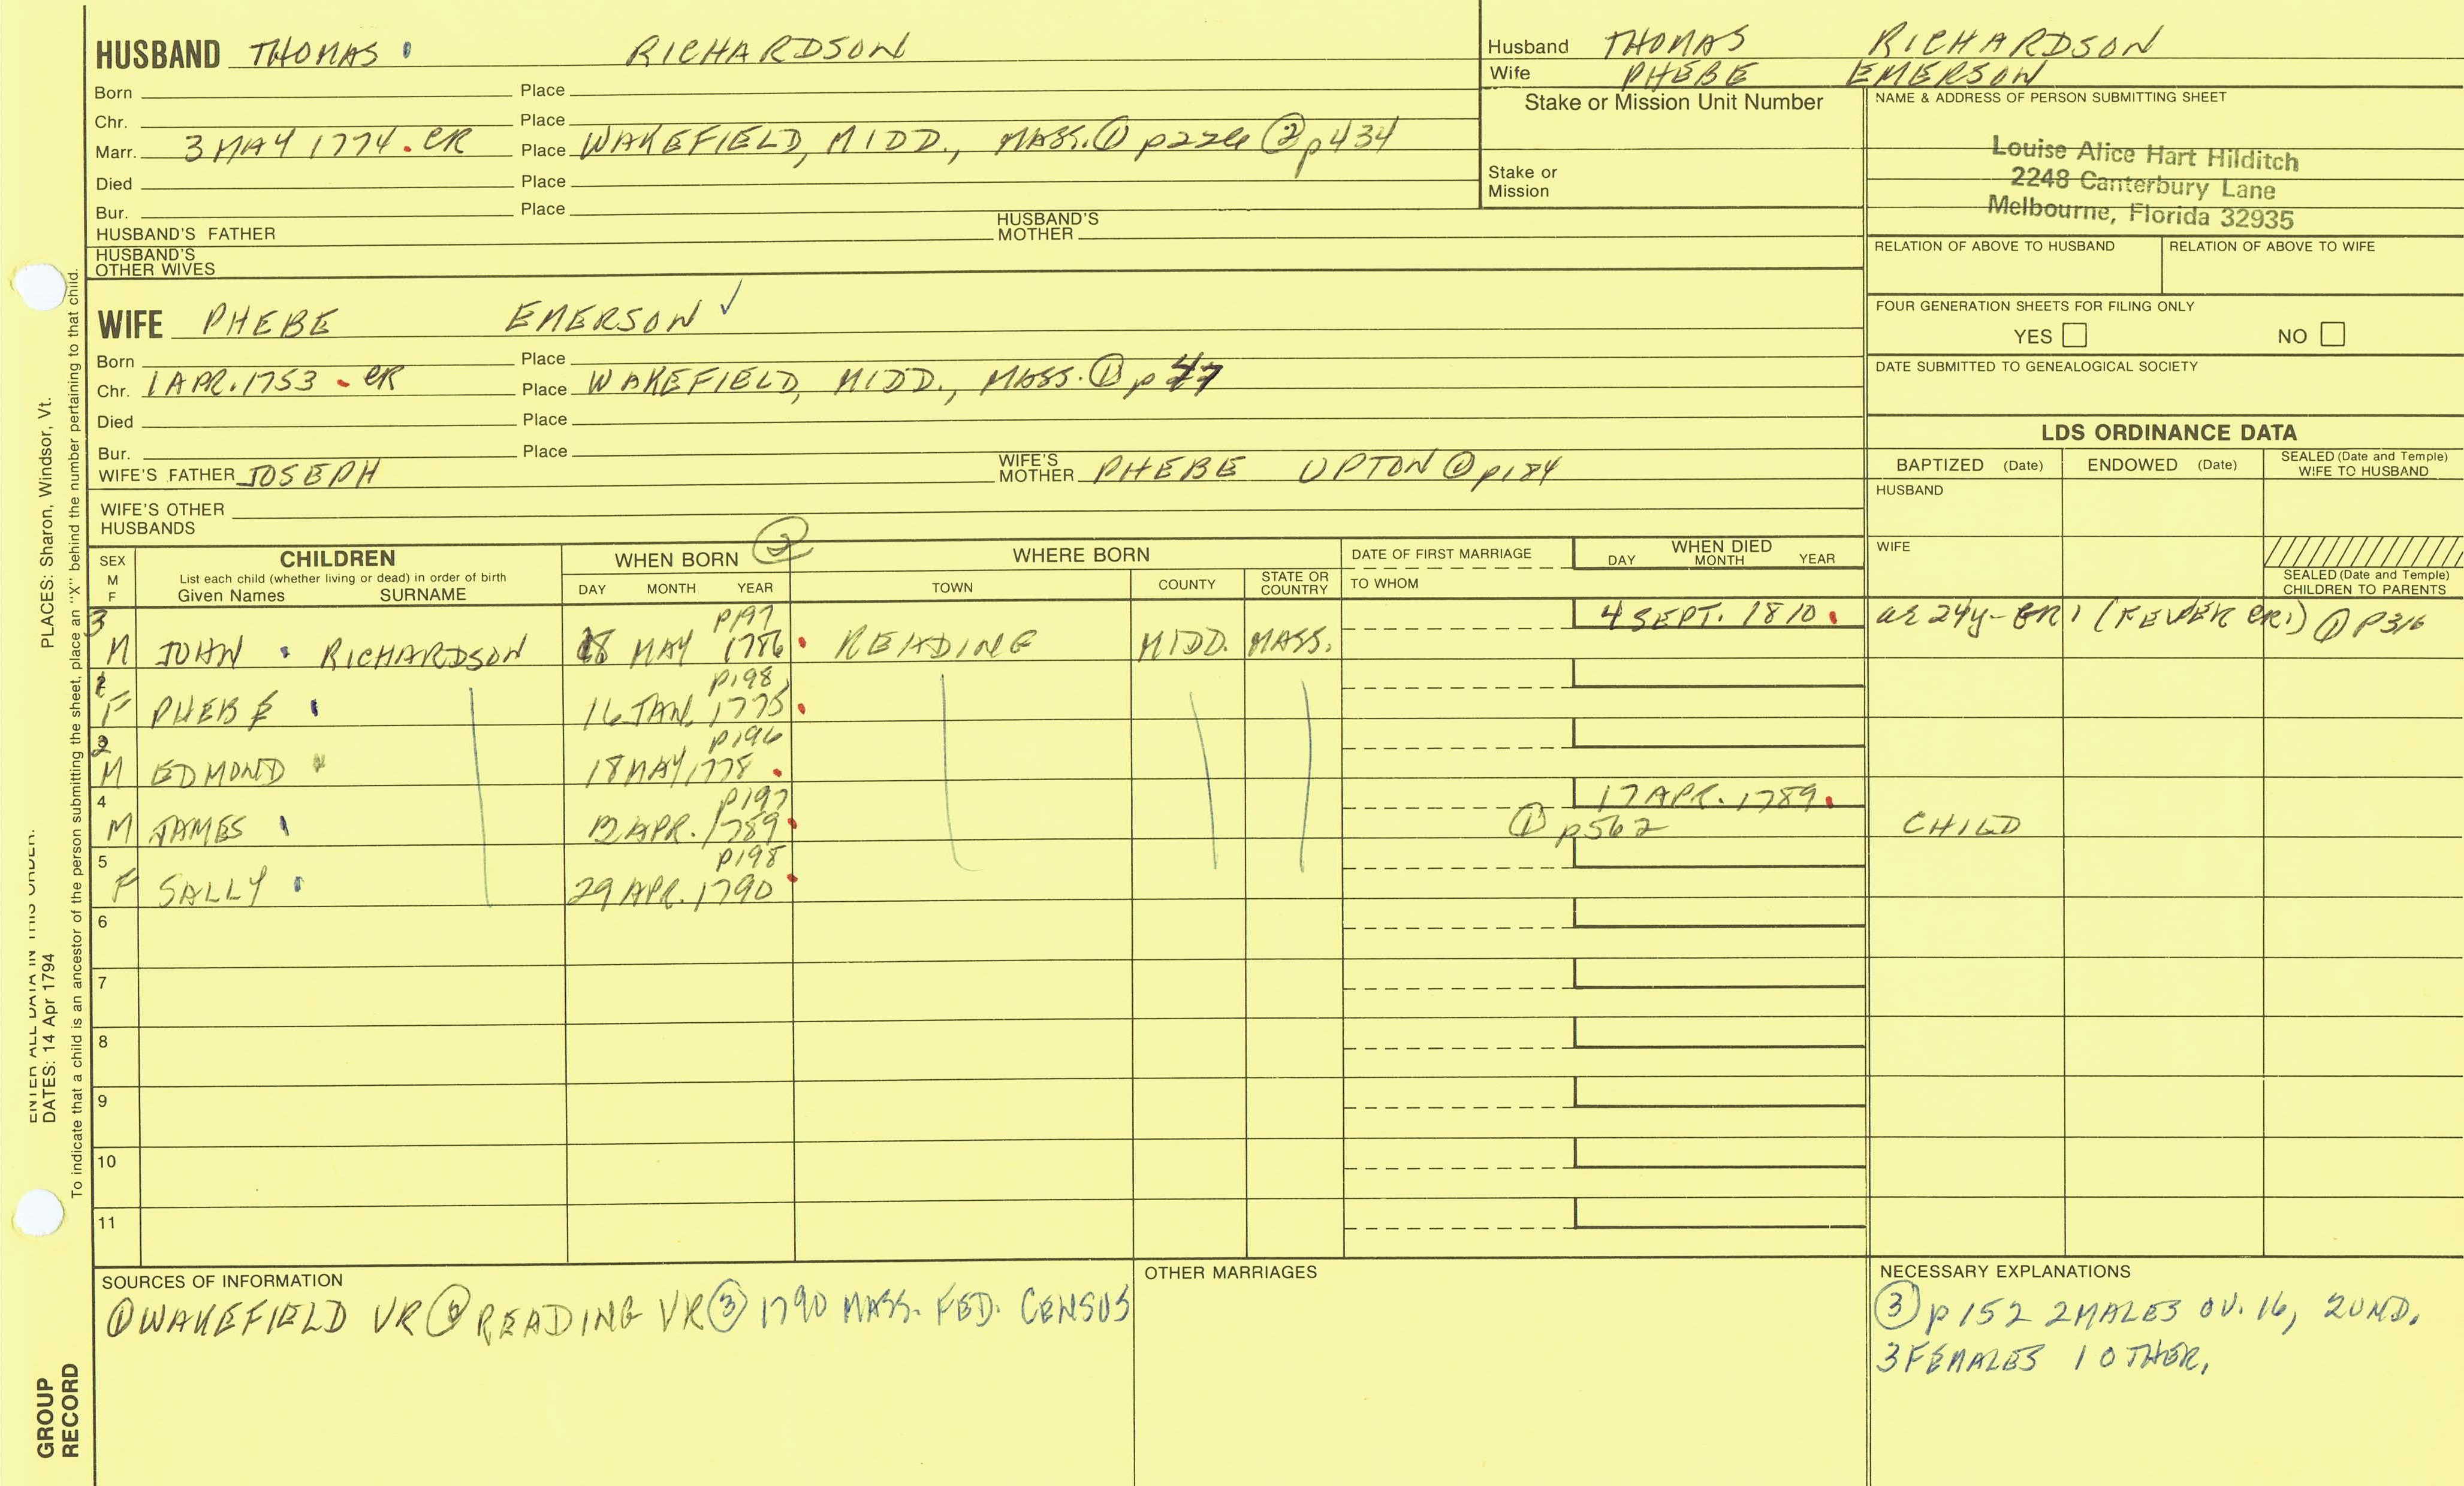 HUSBAND THOMAS RICHARDSON
Born Place
Chr. Place
Marr. 3 MAY 1774. CR Place WAKEFIELD, MIDD., MASS. ① ② p434
Died Place
Bur. Place
HUSBAND'S FATHER HUSBAND'S MOTHER
HUSBAND'S OTHER WIVES
Husband THOMAS RICHARDSON
Wife PHEBE EMERSON
Stake or Mission Unit Number
Stake or Mission
NAME & ADDRESS OF PERSON SUBMITTING SHEET
Louise Alice Hart Hilditch
2248 Canterbury Lane
Melbourne, Florida 32935
RELATION OF ABOVE TO HUSBAND RELATION OF ABOVE TO WIFE
FOUR GENERATION SHEETS FOR FILING ONLY
YES NO
DATE SUBMITTED TO GENEALOGICAL SOCIETY
WIFE PHEBE EMERSON ✓
Born Place
Chr. 1 APR. 1753 . CR Place WAKEFIELD, MIDD., MASS. ① p
Died Place
Bur. Place
WIFE'S FATHER JOSEPH WIFE'S MOTHER PHEBE UPTON ① p184
WIFE'S OTHER HUSBANDS
LDS ORDINANCE DATA
BAPTIZED (Date) ENDOWED (Date) SEALED (Date and Temple) WIFE TO HUSBAND
HUSBAND
WIFE
SEALED (Date and Temple) CHILDREN TO PARENTS
SEX M F
CHILDREN
List each child (whether living or dead) in order of birth
Given Names SURNAME
WHEN BORN ②
DAY MONTH YEAR
WHERE BORN
TOWN COUNTY STATE OR COUNTRY
DATE OF FIRST MARRIAGE
TO WHOM
WHEN DIED
DAY MONTH YEAR
3 p197 4 SEPT. 1810. ae 24y- GR1 (FEVER CR1) ① P316
M JOHN RICHARDSON 18 MAY 1786. READING MIDD. MASS.
1 p198
F PHEBE 16 JAN. 1775.
2 p196
M EDMOND 18 MAY 1778.
4 p197 17 APR. 1789.
M JAMES 12 APR. 1789. ① p562 CHILD
5 p198
F SALLY 29 APR. 1790
6
7
8
9
10
11
SOURCES OF INFORMATION
① WAKEFIELD VR ② READING VR ③ 1790 MASS. FED. CENSUS
OTHER MARRIAGES
NECESSARY EXPLANATIONS
③ p152 2 MALES OV. 16, 2 UND.
3 FEMALES 1 OTHER.
ENTER ALL DATA IN THIS ORDER:
DATES: 14 Apr 1794 PLACES: Sharon, Windsor, Vt.
To indicate that a child is an ancestor of the person submitting the sheet, place an "X" behind the number pertaining to that child.
GROUP
RECORD